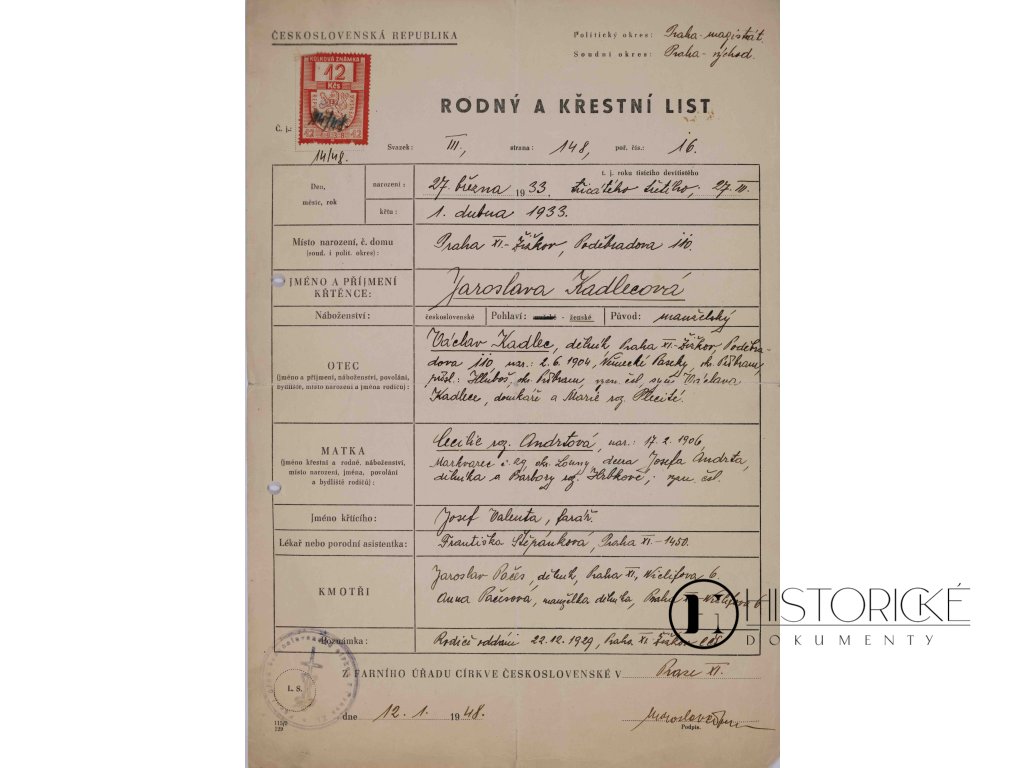 ČESKOSLOVENSKÁ REPUBLIKA
Politický okres: Praha-magistrát
Soudní okres: Praha-východ.
KOLKOVÁ ZNÁMKA
12
Kčs
RODNÝ A KŘESTNÍ LIST
Č. j.:
14/48.
Svazek: III, strana: 148, poř. čís.: 16.
Den, měsíc, rok
narození: 27. března 1933. t. j. roku tisícího devítistého třicátého třetího, 27. III.
křtu: 1. dubna 1933.
Místo narození, č. domu (soud. i polit. okres): Praha XI.-Žižkov, Poděbradova 110.
JMÉNO A PŘÍJMENÍ KŘTĚNCE: Jaroslava Kadlecová
Náboženství: československé Pohlaví: mužské - ženské Původ: manželský
OTEC
(jméno a příjmení, náboženství, povolání, bydliště, místo narození a jména rodičů):
Václav Kadlec, dělník, Praha XI-Žižkov Poděbra-
dova 110 nar.: 2.6.1904, Německé Paseky, ok. Příbram,
přísl.: Hluboš, ok. Příbram, syn Václava
Kadlece, domkáře a Marie roz. Plecité.
MATKA
(jméno křestní a rodné, náboženství, místo narození, jména, povolání a bydliště rodičů):
Cecilie roz. Andrtová, nar.: 17.2.1906
Markvarec ok. Louny, dcera Josefa Andrta,
dělníka a Barbory roz. Hrbkové;
Jméno křtícího: Josef Valenta, farář.
Lékař nebo porodní asistentka: Františka Štěpánková, Praha XI-1450.
KMOTŘI
Jaroslav Pačes, dělník, Praha XI, Viclifova 6.
Anna Pačesová, manželka dělníka, Praha XI-Viclifova 6
HISTORICKÉ
DOKUMENTY
Poznámka: Rodiče oddáni 22.12.1929, Praha XI Žižkov
Z FARNÍHO ÚŘADU CÍRKVE ČESKOSLOVENSKÉ V Praze XI.
L. S.
dne 12. 1. 1948.
Podpis.